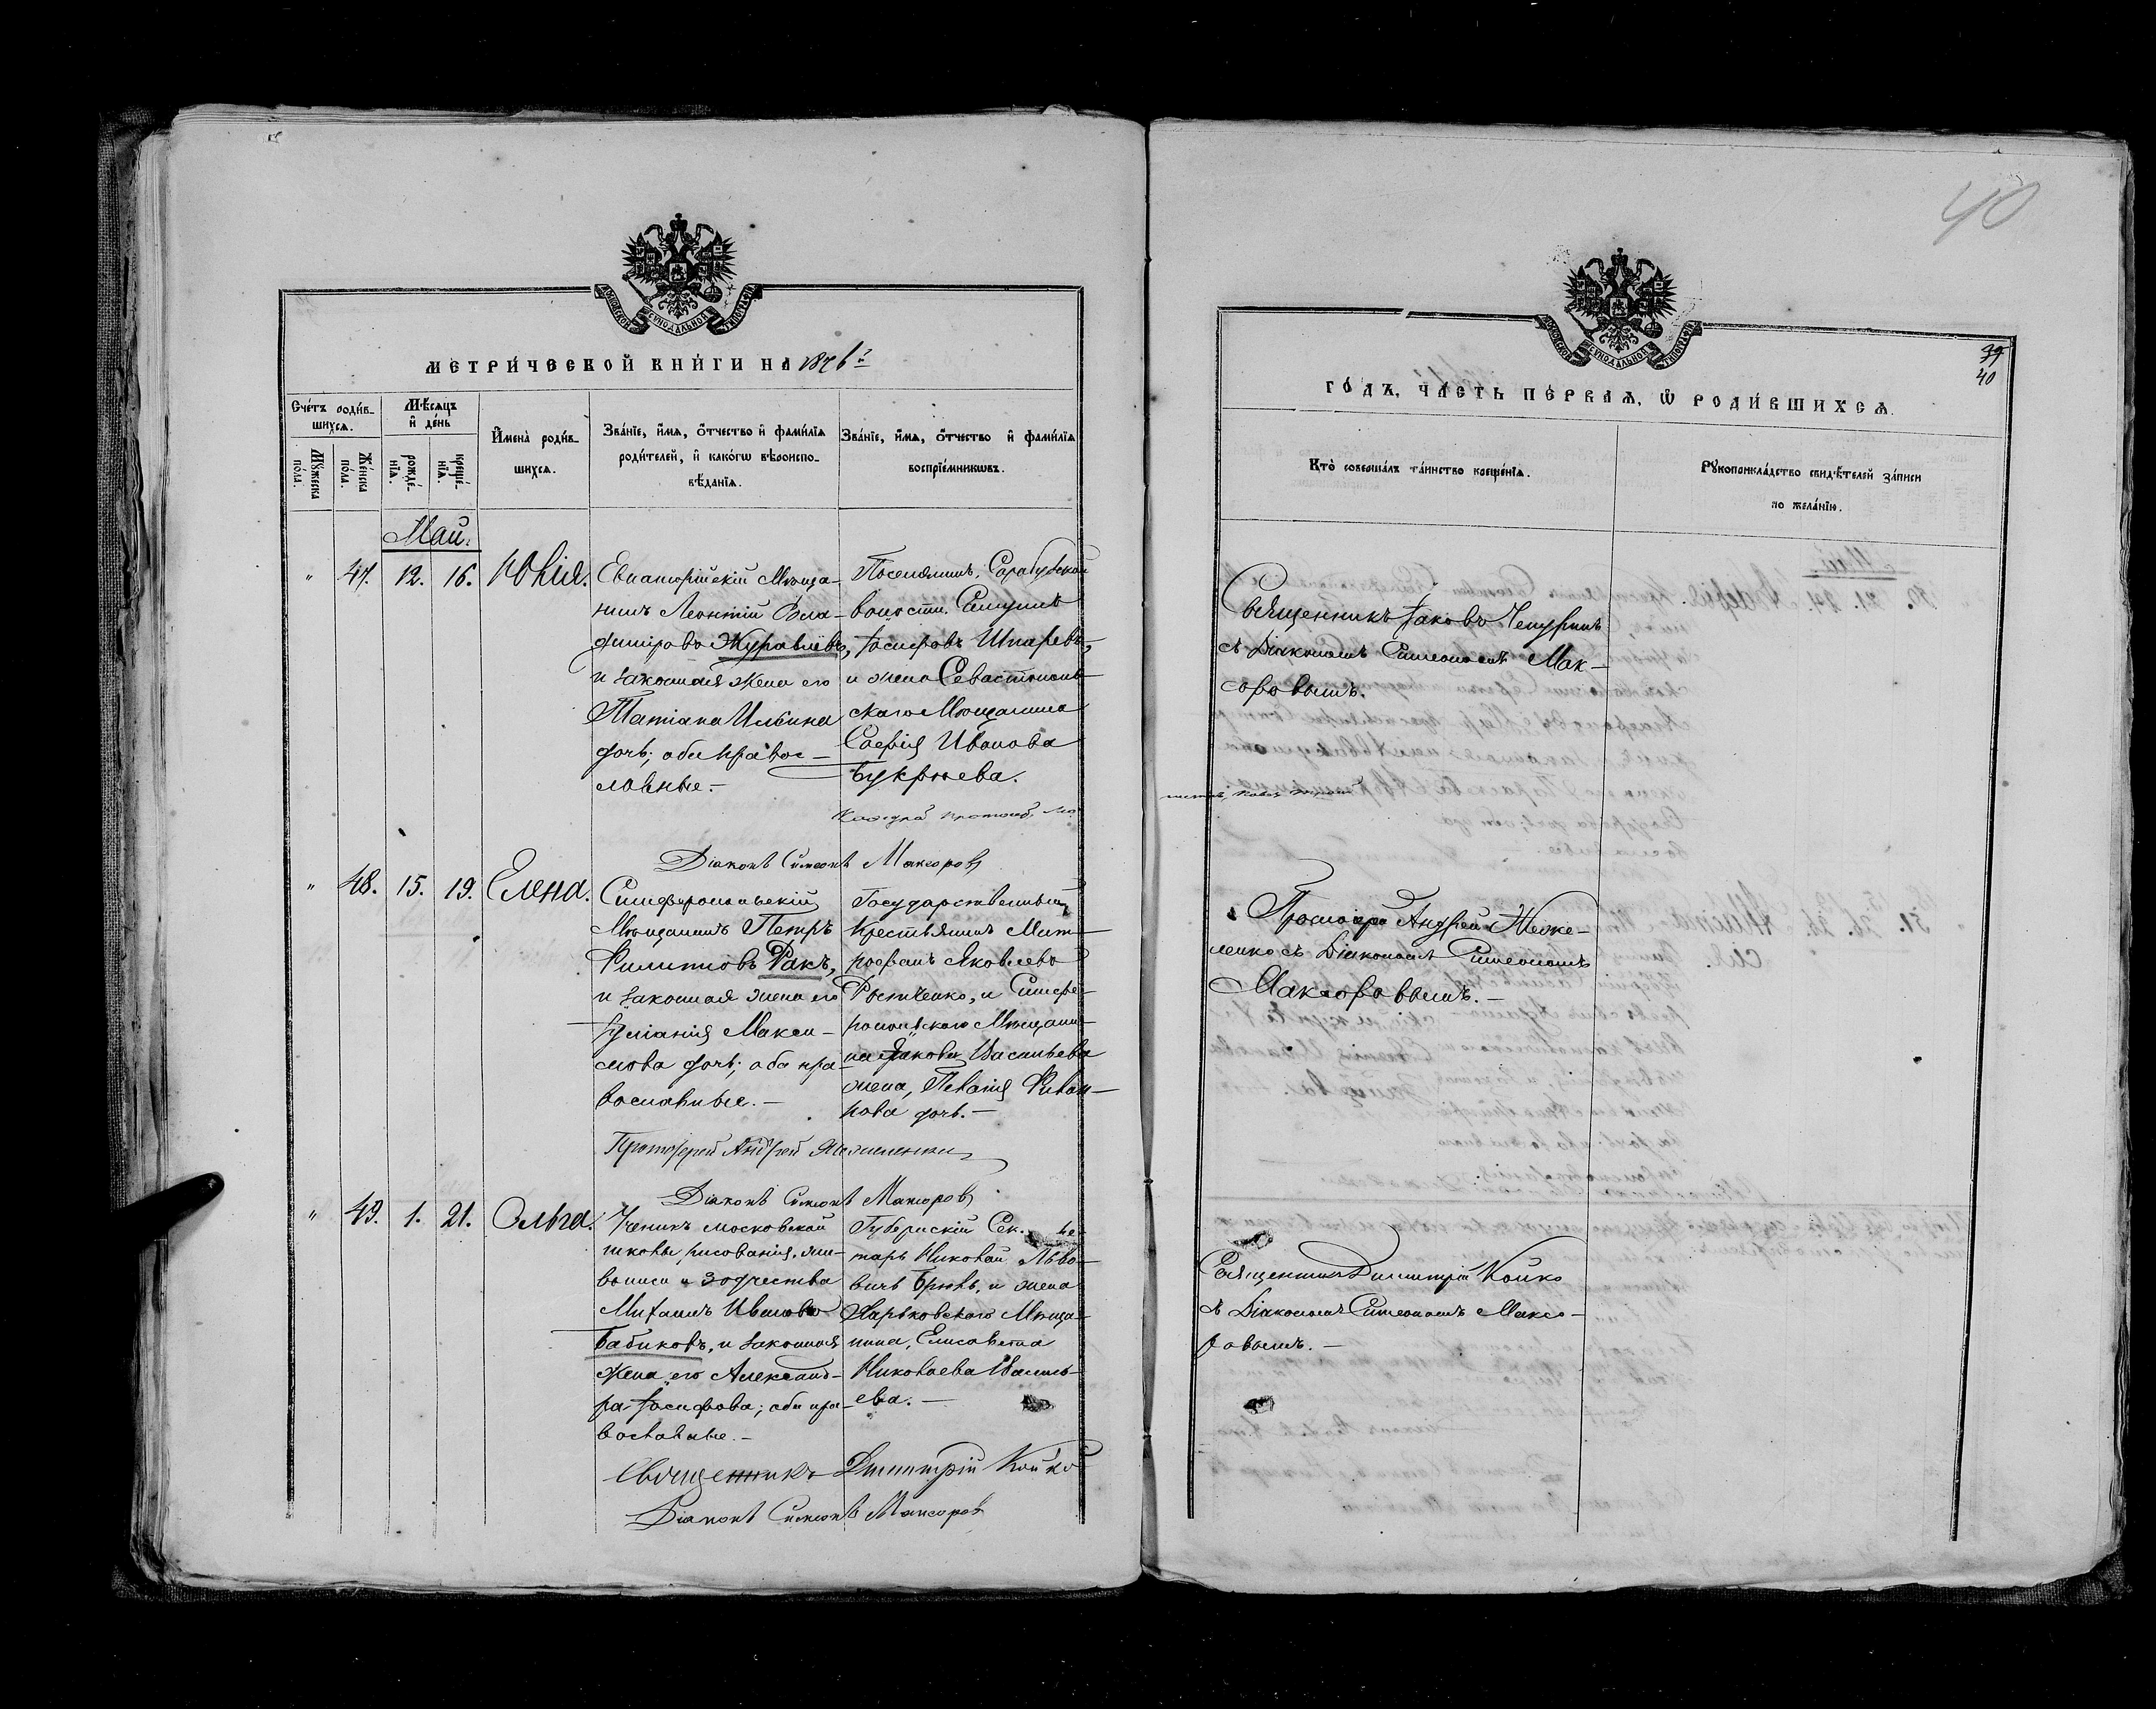 40
МОСКОВСКОЙ СѴНОДАЛЬНОЙ ТИПОГРАФІИ
МЕТРИ́ЧЕСКОЙ КНИ́ГИ НА 1876 й
Сче́тъ роди́в-
шихся.
Мꙋ́жеска по́ла.
Же́нска по́ла.
Мѣ́сяцъ
и҆ де́нь
рожде́-
нїя.
креще́-
нїя.
И҆мена̀ роди́в-
шихся.
Зва́нїе, и҆́мя, ѻ҆́тчество и҆ фами́лїя
роди́телей, и҆ како́гѡ вѣроиспо-
вѣ́данїя.
Зва́нїе, и҆́мя, ѻ҆́тчество и҆ фами́лїя
воспрїе́мникѡвъ.
Май.
" 47. 12. 16. Юлія.
Евпаторійскій Мѣща-
нинъ Леонтій Вла-
диміровъ Журавлевъ,
и законная жена его
Татіана Ильина
дочь; оба правос-
лавные.-
Поселянинъ, Сарабузской
волости
Іосифовъ
и жена Севастополь-
скаго Мѣщанина
Софія Иванова
Букрѣева.
Діаконъ Симеонъ Максоровъ
" 48. 15. 19. Елена.
Симферопольскій
Мѣщанинъ Петръ
Филиповъ Ракъ,
и законная жена его
Іуліанія Макси-
мова дочь; оба пра-
вославные.-
Государственный
Крестьянинъ Мит-
рофанъ Яковлевъ
и Симфе-
ропольскаго Мѣщани-
на Якова Васильева
жена, Пелагія
дочь.-
Протоіерей Андрей
Діаконъ Симеонъ Максоровъ
" 49. 1. 21. Ольга.
Ученикъ московской
школы рисованія, жи-
вописи и зодчества
Михаилъ Ивановъ
Бабиковъ, и законная
жена его Александ-
ра Іосифова; оба пра-
вославные.-
Губернскій Сек
тарь Николай Льво-
вичъ и жена
Харьковскаго Мѣща-
нина, Елисавета
Николаева Василь-
ева.-
Священникъ Димитрій Койко
Діаконъ Симеонъ Максоровъ
МОСКОВСКОЙ СѴНОДАЛЬНОЙ ТИПОГРАФІИ
39
40
ГО́ДЪ, ЧА́СТЬ ПЕ́РВАЯ, Ѽ РОДИ́ВШИХСЯ.
Кто̀ соверша́лъ та́инство креще́нїя.
Рꙋкоприкла́дство свидѣ́телей за́писи
по жела́нїю.
Священникъ Іаковъ Чепуринъ
съ Діакономъ Симеономъ Мак-
соровымъ.
Протоіерей Андрей Неже-
ленко съ Діакономъ Симеономъ
Максоровымъ.-
Священникъ Димитрій Койко
съ Діакономъ Симеономъ Максо-
ровымъ.-